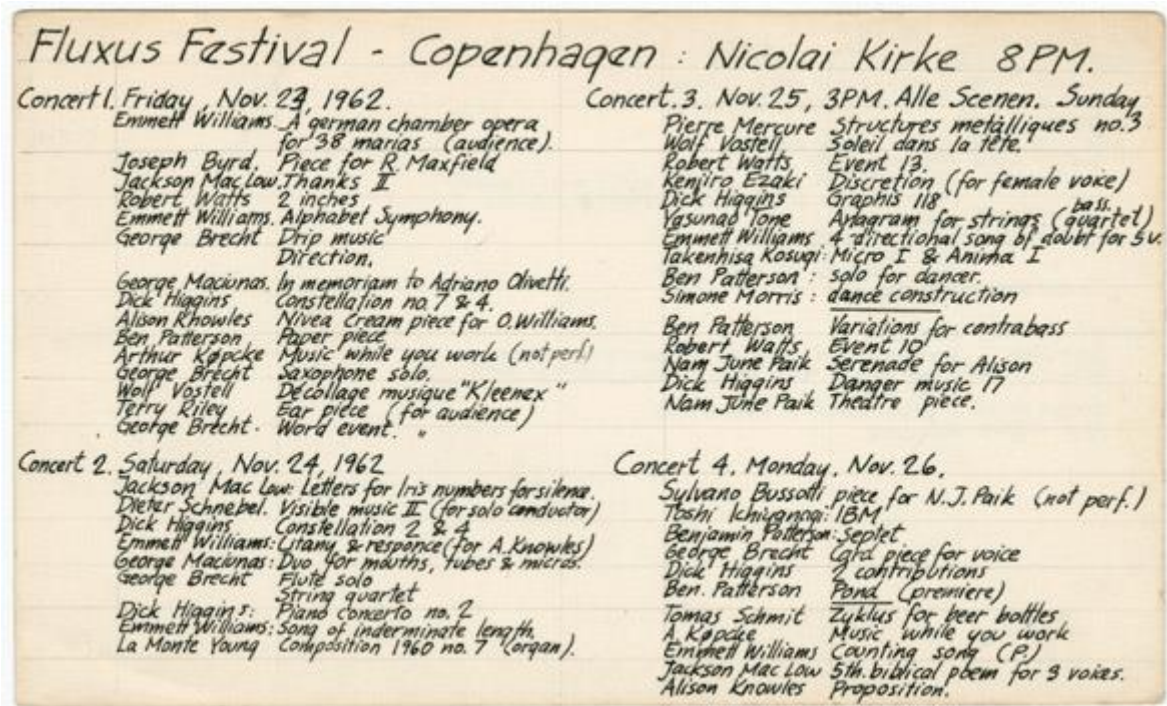 Fluxus Festival - Copenhagen : Nicolai Kirke 8PM.
Concert 1. Friday, Nov. 23, 1962.
Emmett Williams. A german chamber opera
for 38 marias (audience).
Joseph Byrd. Piece for R. Maxfield
Jackson Mac Low. Thanks II
Robert Watts 2 inches
Emmett Williams. Alphabet Symphony.
George Brecht Drip music
Direction.
George Maciunas. In memoriam to Adriano Olivetti.
Dick Higgins Constellation no. 7 & 4.
Alison Knowles Nivea Cream piece for O. Williams.
Ben Patterson Paper piece
Arthur Køpcke Music while you work (not perf.)
George Brecht Saxophone solo.
Wolf Vostell Décollage musique "Kleenex"
Terry Riley Ear piece (for audience)
George Brecht. Word event. "
Concert 2. Saturday, Nov. 24, 1962
Jackson Mac Low: Letters for Iris numbers for silence.
Dieter Schnebel. Visible music II (for solo conductor)
Dick Higgins Constellation 2 & 4
Emmett Williams: Litany & responce (for A. Knowles)
George Maciunas: Duo for mouths, tubes & micros.
George Brecht Flute solo
String quartet
Dick Higgins: Piano concerto no. 2
Emmett Williams: Song of inderminate length
La Monte Young Composition 1960 no. 7 (organ).
Concert. 3. Nov. 25, 3PM. Alle Scenen. Sunday
Pierre Mercure Structures metálliques no. 3
Wolf Vostell Soleil dans la tête.
Robert Watts Event 13.
Kenjiro Ezaki Discretion (for female voice)
Dick Higgins Graphis 118
bass.
Yasunao Tone Anagram for strings (quartet)
Emmett Williams 4-directional song of doubt for 5 v.
Takenhisa Kosugi: Micro I & Anima I
Ben Patterson : solo for dancer.
Simone Morris : dance construction
Ben Patterson Variations for contrabass
Robert Watts Event 10
Nam June Paik Serenade for Alison
Dick Higgins Danger music 17
Nam June Paik Theatre piece.
Concert 4. Monday, Nov. 26.
Sylvano Bussotti piece for N.J. Paik (not perf.)
Toshi Ichiyanagi: IBM
Benjamin Patterson: Septet.
George Brecht Card piece for voice
Dick Higgins 2 contributions
Ben. Patterson Pond (premiere)
Tomas Schmit Zyklus for beer bottles
A. Køpcke Music while you work
Emmett Williams Counting song (P.)
Jackson Mac Low 5th. biblical poem for 3 voices.
Alison Knowles Proposition.